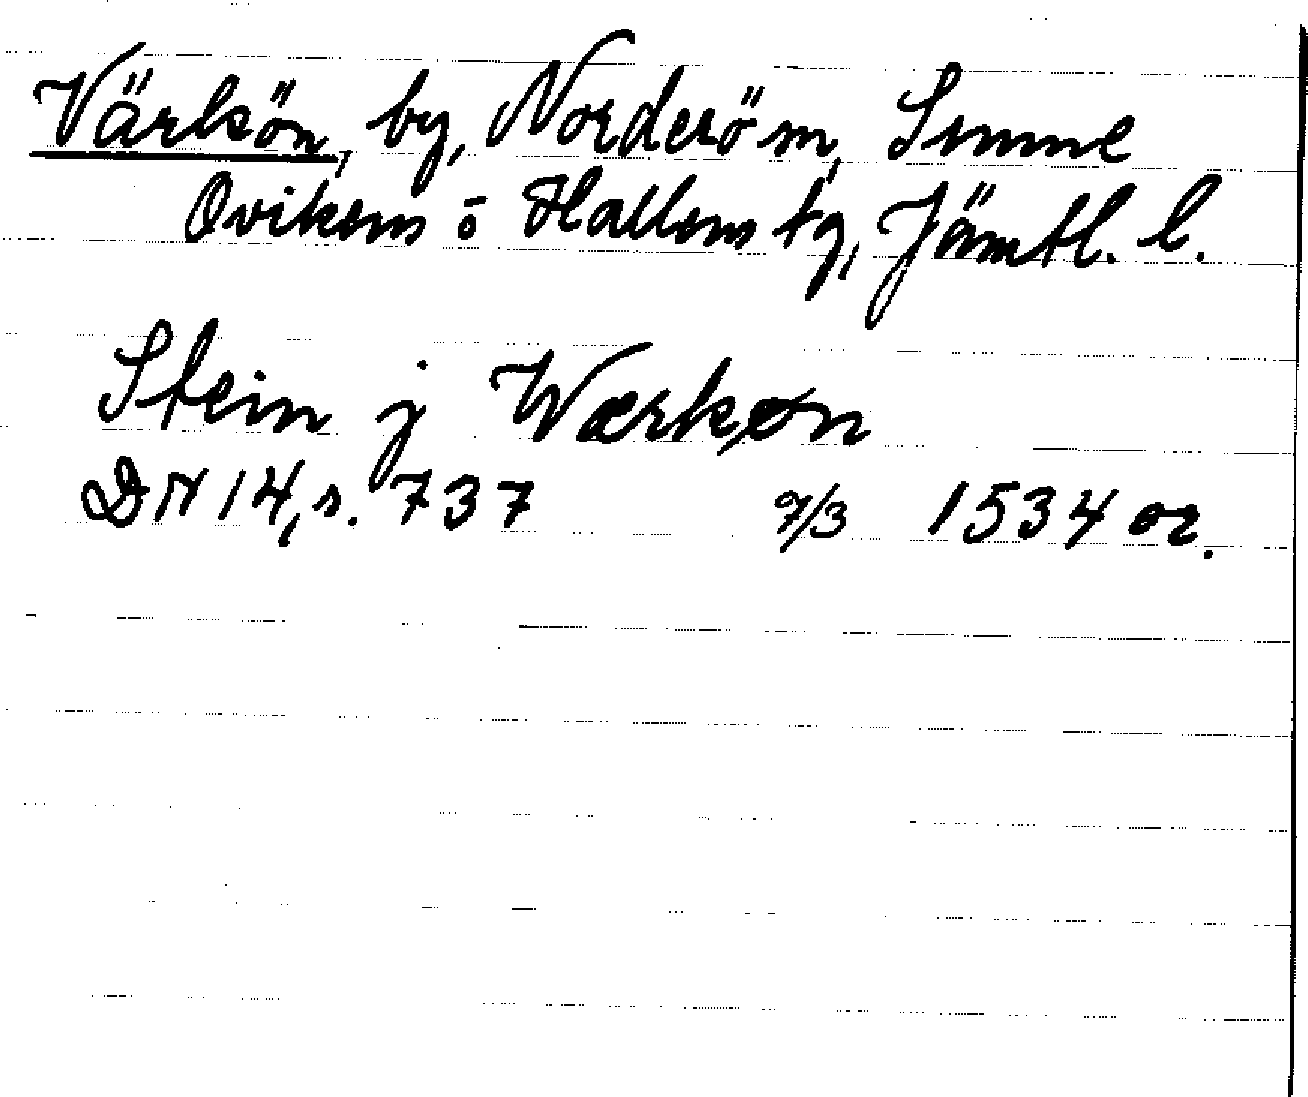 Värkön, by, Norderö sn, Sunne
Ovikens o Hallens tg, Jämtl. l.
Stein j Wærkøn
DN 14, s. 737 9/3 1534 or.